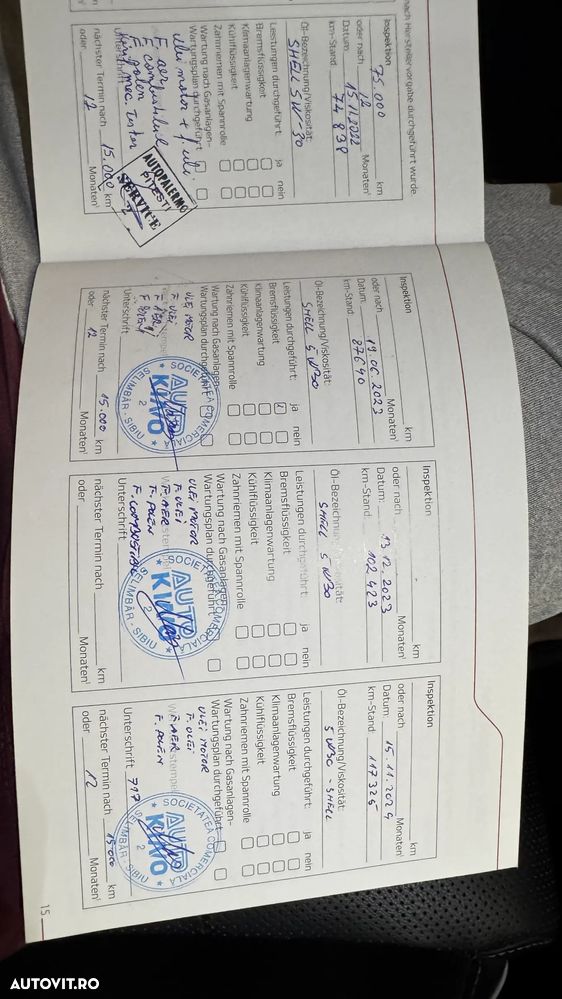 nach Herstellervorgabe durchgeführt wurde.
Inspektion 75.000 km
oder nach 12 Monaten¹
Datum: 15.11.2022
km-Stand: 74 838
Öl-Bezeichnung/Viskosität:
SHELL 5W-30
Leistungen durchgeführt: ja nein
Bremsflüssigkeit
Klimaanlagenwartung
Kühlflüssigkeit
Zahnriemen mit Spannrolle
Wartung nach Gasanlagen-
Wartungsplan durchgeführt
ulei motor + f. ulei
F. aer
F. combustibil
F. polen
AUTOPALERMO
PITESTI
SERVICE
2
nächster Termin nach 15.000 km
oder 12 Monaten¹
Inspektion km
oder nach Monaten¹
Datum: 19.06.2023
km-Stand: 87640
Öl-Bezeichnung/Viskosität:
SHELL 5W30
Leistungen durchgeführt: ja nein
Bremsflüssigkeit
Klimaanlagenwartung
Kühlflüssigkeit
Zahnriemen mit Spannrolle
Wartung nach Gasanlagen-
Wartungsplan durchgeführt
ULEI MOTOR
F. ULEI
F. AER
Unterschrift
SOCIETATEA COMERCIALA
AUTO
KINVO
2
SELIMBĂR - SIBIU
nächster Termin nach 15.000 km
oder 12 Monaten¹
Inspektion km
oder nach Monaten¹
Datum: 13.12.2023
km-Stand: 102 423
Öl-Bezeichnung/Viskosität:
SHELL 5W30
Leistungen durchgeführt: ja nein
Bremsflüssigkeit
Klimaanlagenwartung
Kühlflüssigkeit
Zahnriemen mit Spannrolle
Wartung nach Gasanlagen-
Wartungsplan durchgeführt
ULEI MOTOR
F. ULEI
F. AER
F. POLEN
F. COMBUSTIBIL
Unterschrift
SOCIETATEA COMERCIALA
AUTO
KINVO
2
SELIMBĂR - SIBIU
nächster Termin nach km
oder Monaten¹
Inspektion km
oder nach Monaten¹
Datum: 15.11.2024
km-Stand: 117325
Öl-Bezeichnung/Viskosität:
5W30 - SHELL
Leistungen durchgeführt: ja nein
Bremsflüssigkeit
Klimaanlagenwartung
Kühlflüssigkeit
Zahnriemen mit Spannrolle
Wartung nach Gasanlagen-
Wartungsplan durchgeführt
ULEI MOTOR
F. ULEI
F. AER
F. POLEN
Unterschrift
SOCIETATEA COMERCIALA
AUTO
KINVO
2
SELIMBĂR - SIBIU
nächster Termin nach 15000 km
oder 12 Monaten¹
15
AUTOVIT.RO